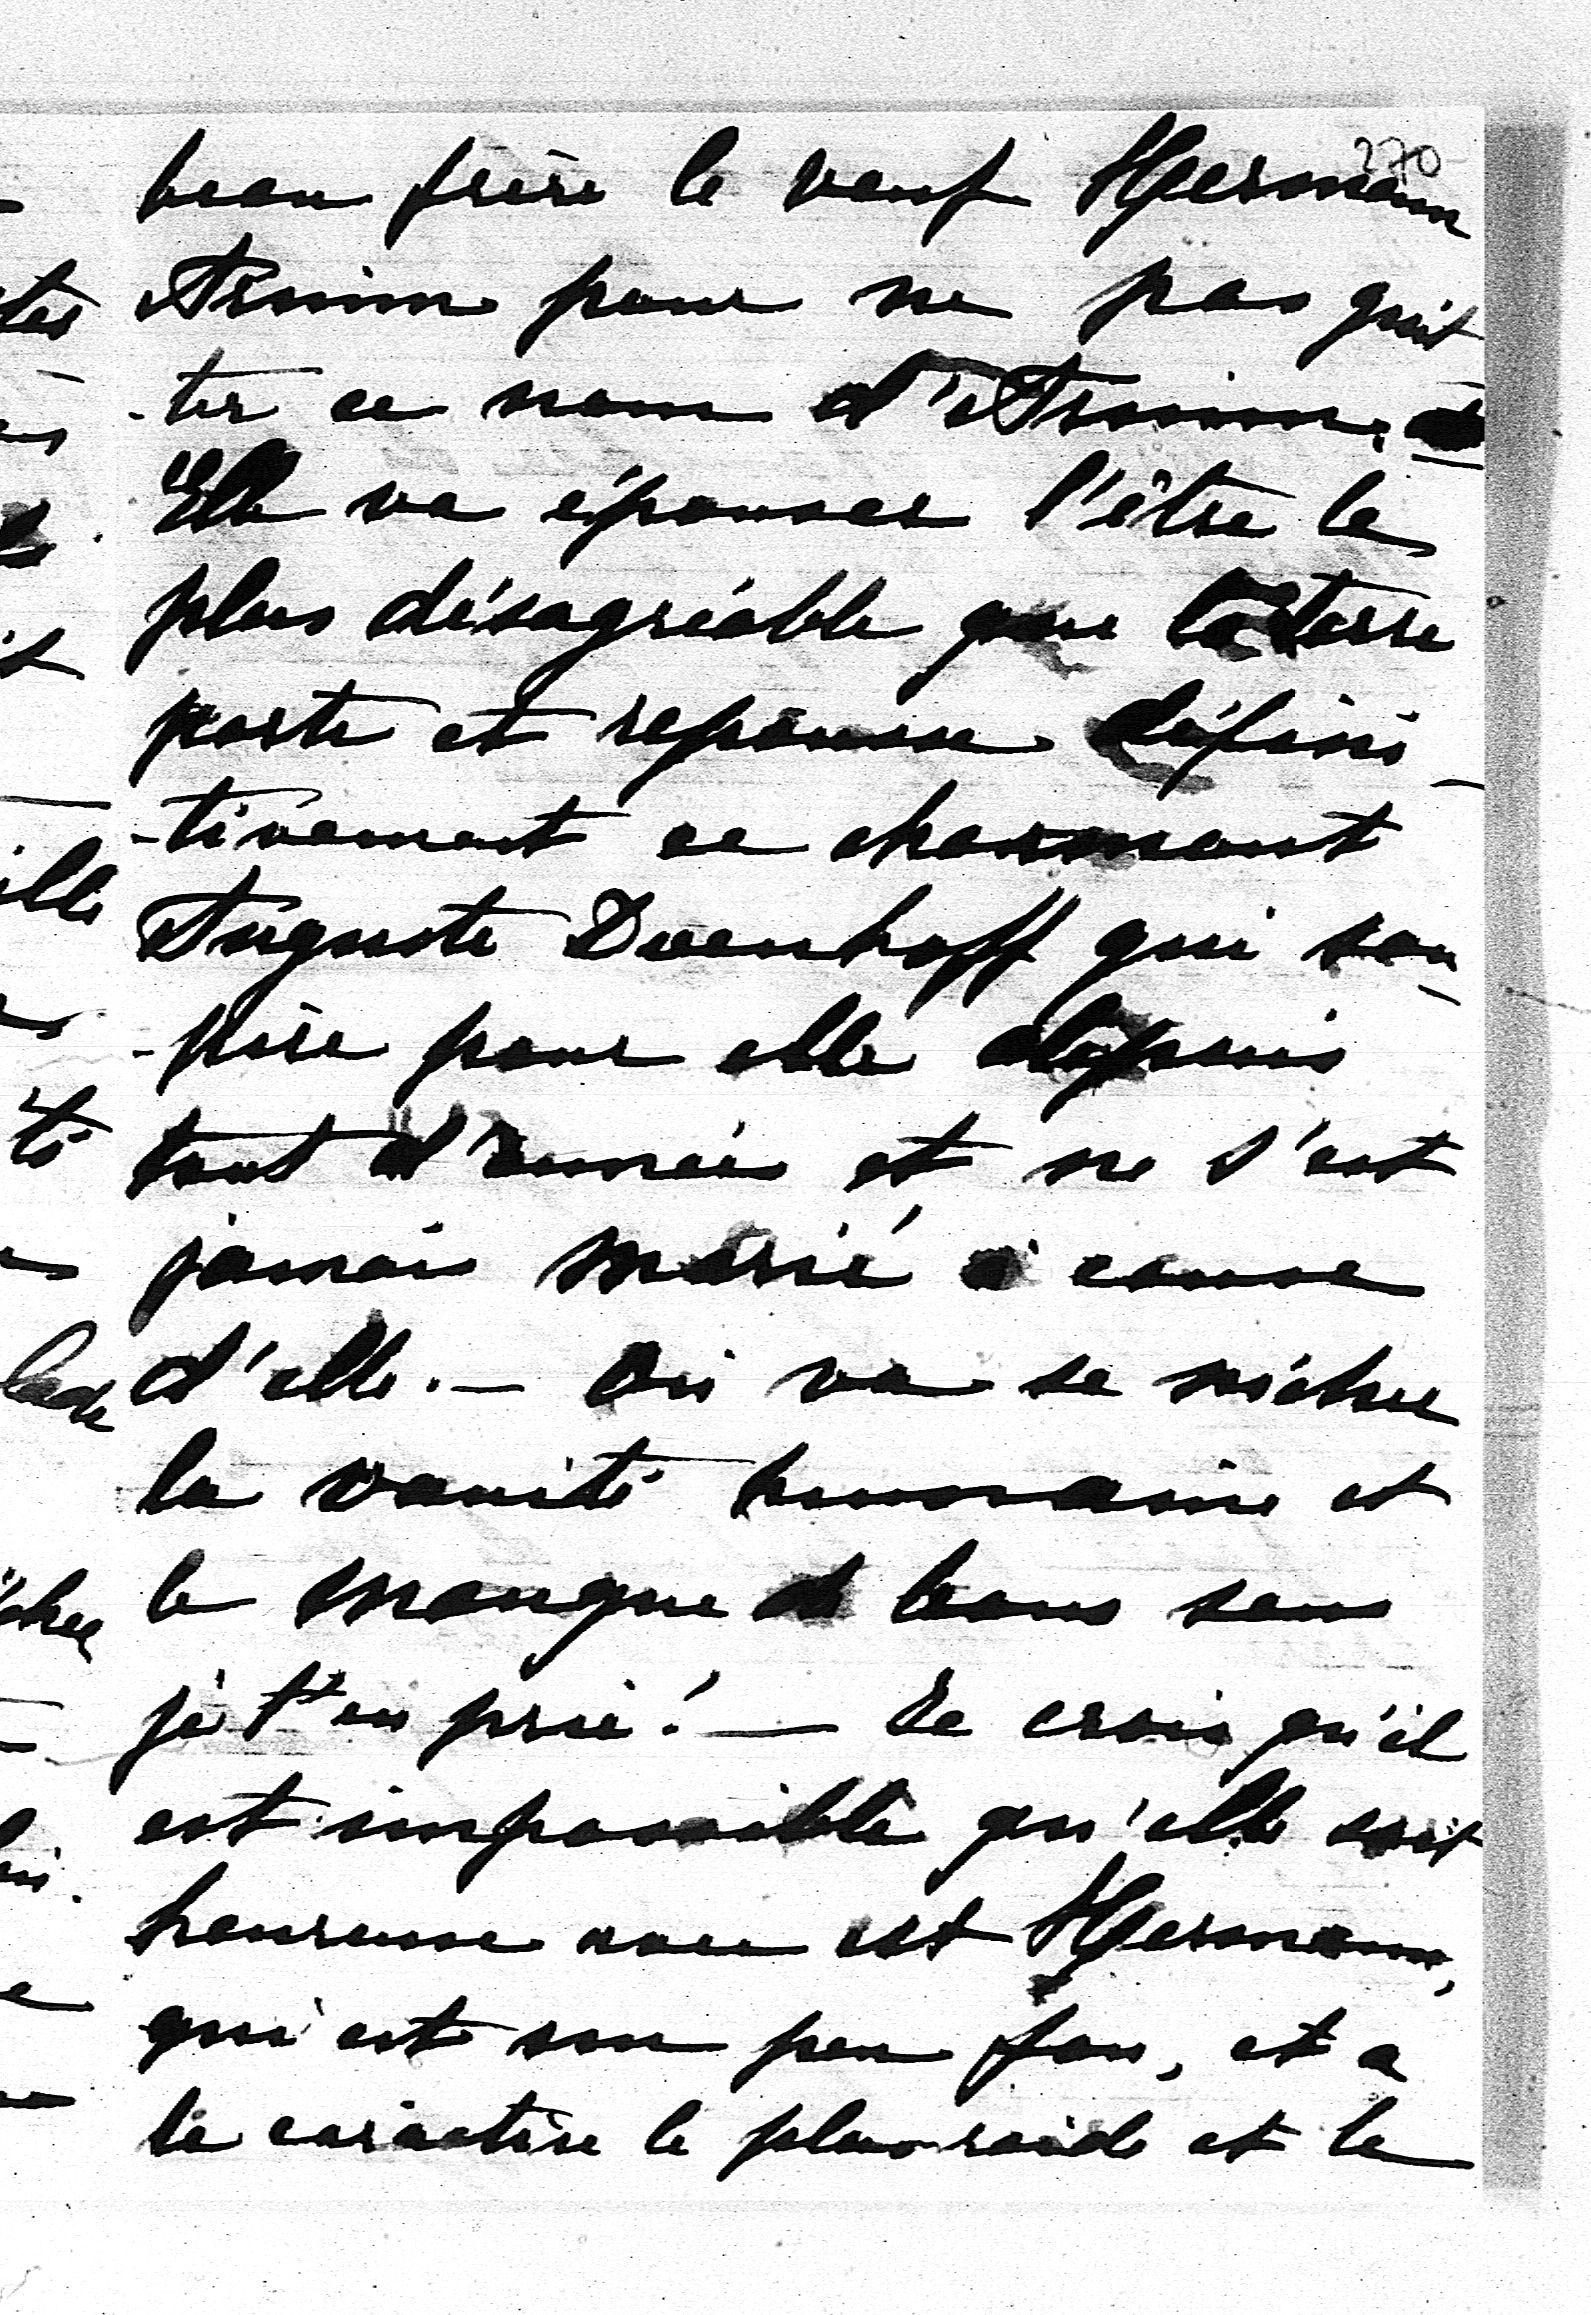 270
beau frère le veuf Hermann
Arnim pour ne pas quit
-ter ce nom d'Arnim.
Elle va épouser l'être le
plus désagréable que la terre
porte et repousse défini-
-tivement ce charmant
Auguste Doenhoff qui sou-
-pire pour elle depuis
tant d'année et ne s'est
jamais marié à cause
d'elle. — Où va se nicher
la vanité humaine et
le manque de bons sens
je t'en prie! — Je crois qu'il
est impossible qu'elle soit
heureuse avec cet Hermann,
qui est un peu fou, et a
le caractère le plus raide et le